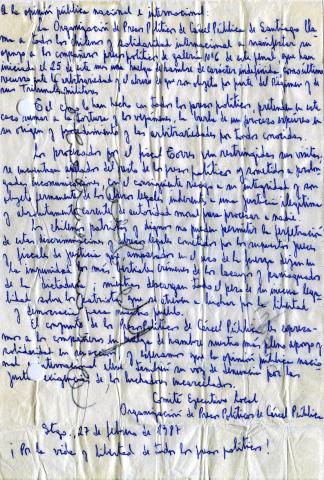 A la opinión pública nacional e internacional:
La Organización de Presos Políticos de Cárcel Pública de Santiago lla
ma a todos los chilenos y solidaridad internacional a manifestar su
apoyo a los compañeros presos políticos de galería Nº6 de este penal, que han
iniciado el 25 de este mes una huelga de hambre de carácter indefinida, como último
recurso ante la arbitrariedad y el abuso de que son objeto por parte del Régimen y de
sus Tribunales Militares.
Tal como lo han hecho con todos los presos políticos, pretenden en este
caso sumar a la tortura y los vejámenes, la burla de un proceso espúreo en
su origen y procedimiento y las arbitrariedades por todos conocidas.
Los procesados por el fiscal Torres ven restringidas sus visitas,
se encuentran aislados del resto de los presos políticos y sometidos a prolon
gadas incomunicaciones, con el consiguiente riesgo a su integridad y son
objeto permanente de los abusos legales inherentes a una justicia ilegítima
y absolutamente carente de autoridad moral para procesar a nadie.
Los chilenos patriotas y dignos no pueden permitir la perpetración
de estas discriminaciones y abusos legales cometidos por los supuestos jueces
y fiscales de justicia que amparados en el uso de la fuerza, dejan en
la impunidad los más brutales crímenes de los lacayos y paniaguados
de la dictadura, mientras descargan todo el peso de su inmensa ilega
lidad sobre los patriotas que se atreven a luchar por la libertad
y democracia para nuestro pueblo.
El conjunto de los presos políticos de Cárcel Pública, les expresa-
mos a los compañeros en huelga de hambre nuestro más pleno apoyo y
solidaridad en sus y esperamos que la opinión pública nacio
nal e internacional eleve también su voz de denuncia por las
justas exigencias de los luchadores encarcelados.
Comité Ejecutivo Local
Organización de Presos Políticos de Cárcel Pública
Stgo., 27 de febrero de 1987
¡Por la vida y libertad de todos los presos políticos!